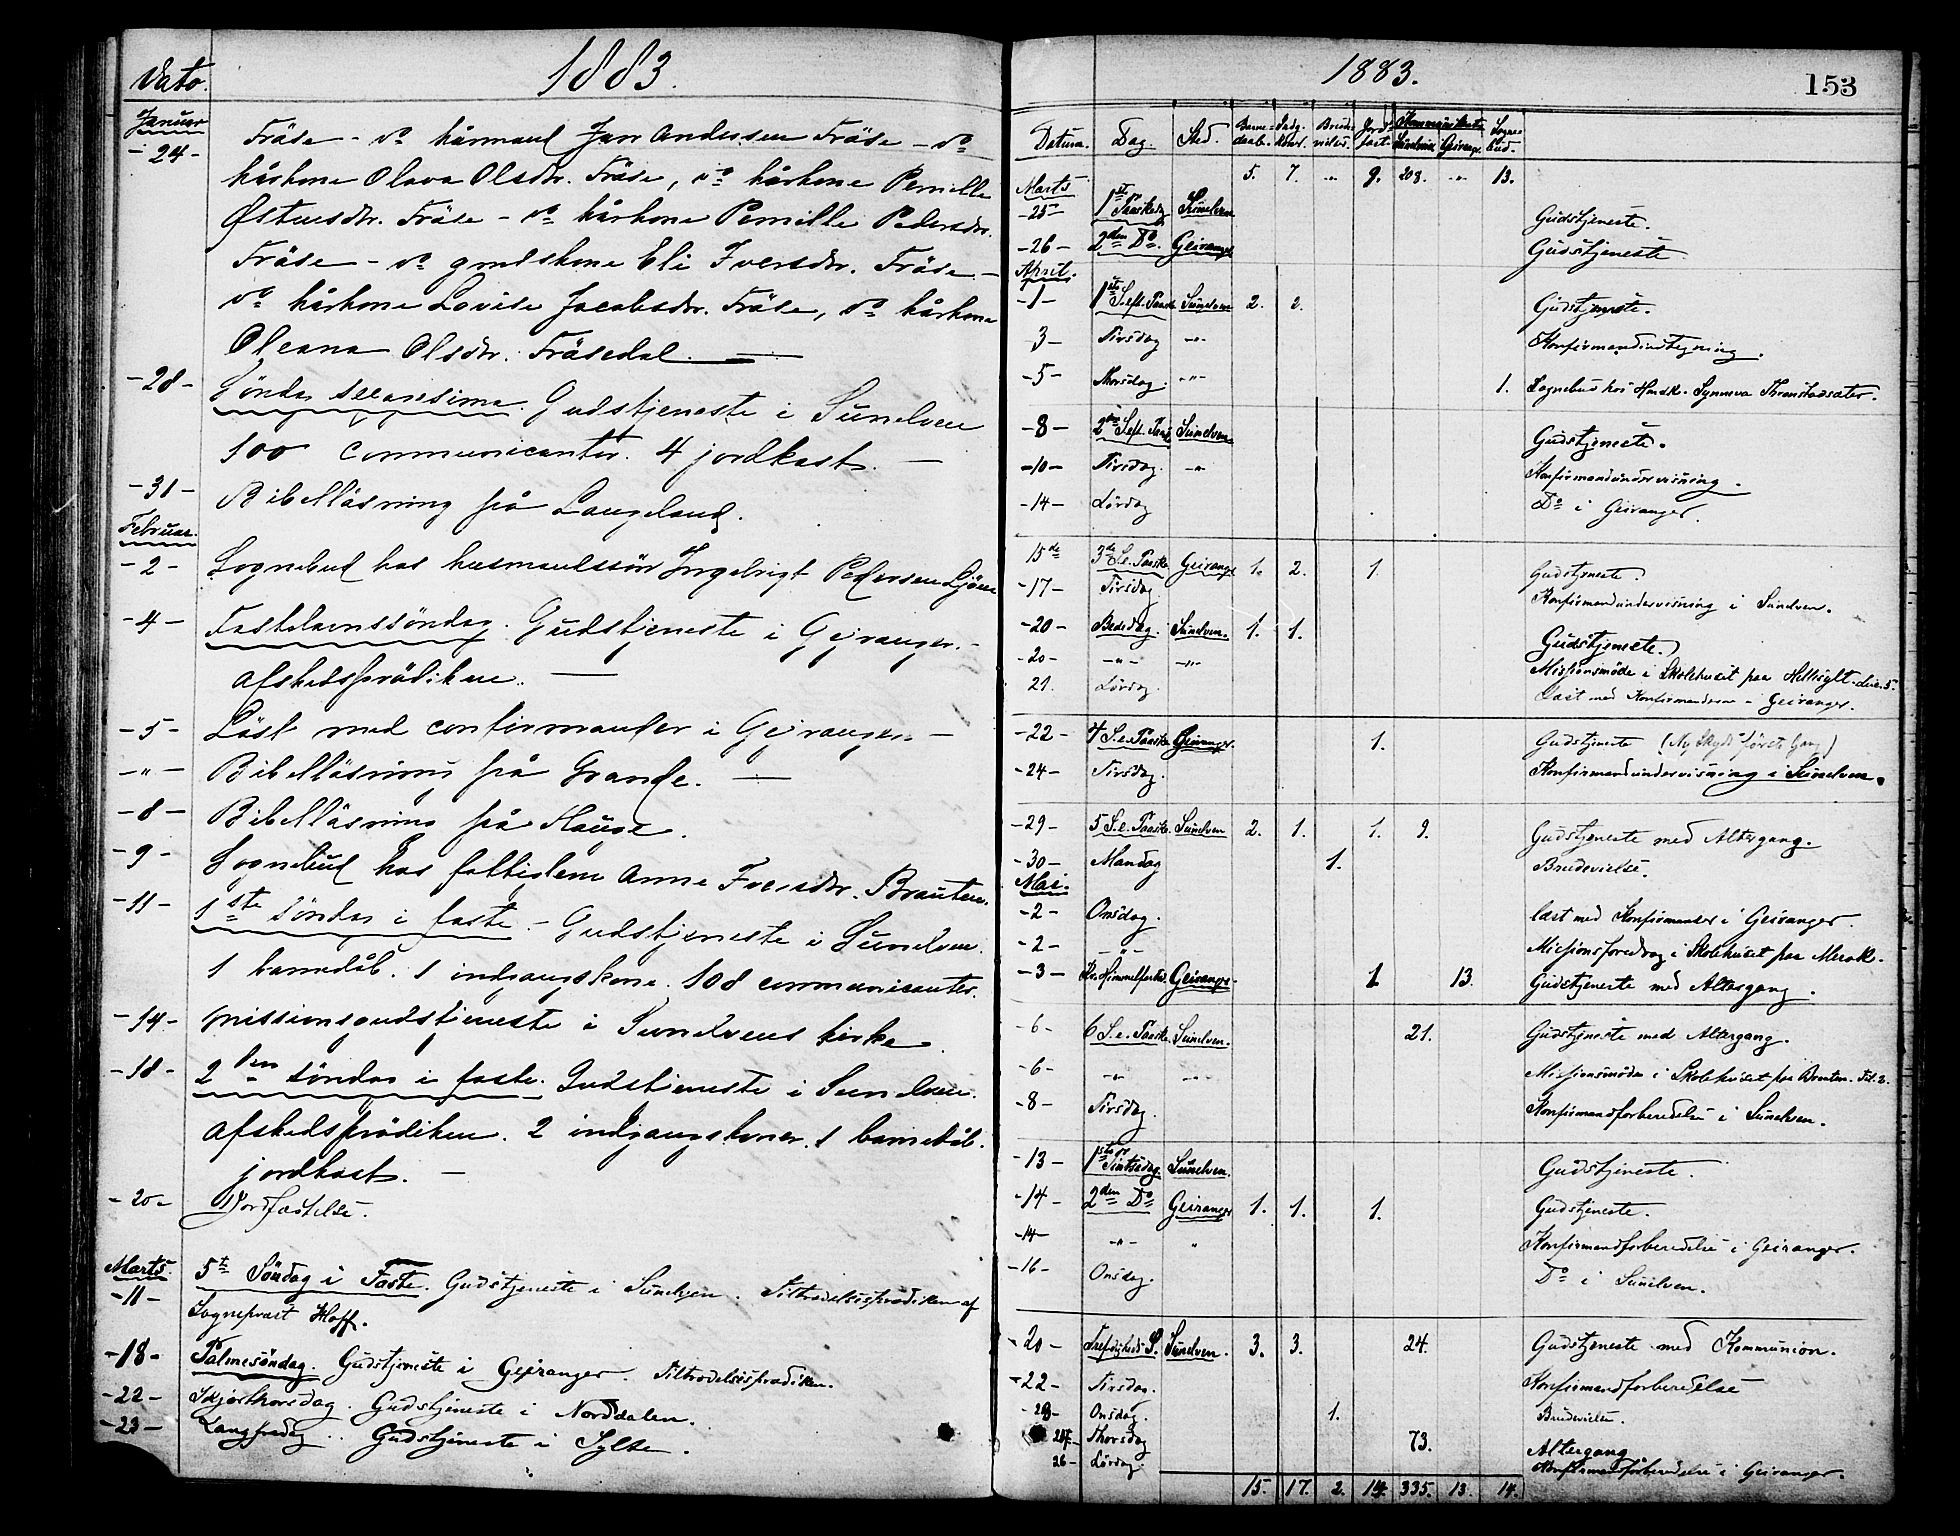 1883.
Dato.
Januar
-24- Fräse - do kårmand Jan Andersen Fräse - do
kårkone Olava Olsdtr. Fräse, do kårkone Pernille
Østensdtr. Fräse - do kårkone Pernille Pedersdtr.
Fräse - do gmdskone Eli Iversdtr. Fräse -
do kårkone Lovise Jacobsdtr. Fräse, do kårkone
Oleana Olsdtr. Fräsedal. —
-28- Söndag sexagesima. Gudstjeneste i Sunelven
100 communicanter. 4 jordkast. —
-31- Bibelläsning på Langeland.
Februar.
-2- Sognebud hos husmandssön Ingebrigt Pedersen Ljöen
-4- Fastelavnssöndag. Gudstjeneste i Gejranger. -
afskedsprädiken. —
-5- Läst med confirmander i Gejranger. —
-"- Bibelläsning på Grande. —
-8- Bibelläsning på Hauge.
-9- Sognebud hos fattiglem Anne Iversdtr. Brauten.
-11- 1ste söndag i faste. - Gudstjeneste i Sunelven.
1 barnedåb. 1 indgangskone. 108 communicanter.
-14- Missionsgudstjeneste i Sunelvens kirke
-18- 2den söndag i faste. Gudstjeneste i Sunelven.
afskedsprädiken. 2 indgangskoner. 1 barnedåb.
jordkast. —
-20- Jordfæstelse.
Marts.
-11- 5te Söndag i Faste. Gudstjeneste i Sunelven. Tiltrædelsesprædiken af
Sogneprest Hoff.
-18- Palmesöndag. Gudstjeneste i Geiranger. Tiltrædelsesprædiken.
-22- Skjærthorsdag. Gudstjeneste i Norddalen.
-23- Langfredag.. Gudstjeneste i Sylte.
1883.
153
Datum. Dag. Sted. Barne-daab. Indg. koner. Brude-vielser. Jord-fæst. Kommunikanter Sunelven Geiranger. Sogne-bud.
5. 7. " 9. 208. " 13.
Marts
-25- 1ste Paaskedg Sunelven Gudstjeneste.
-26- 2den Do. Geiranger Gudstjeneste
April.
-1- 1ste S. eft. Paaske Sunelven 2. 2. Gudstjeneste.
3- Tirsdag -"- Konfirmandindtegning.
-5- Thorsdag. -"- 1. Sognebud hos Hmdk. Synneva Thronstadsæter.
-8- 2den S. eft. Paask Sunelven Gudstjeneste.
-10- Tirsdag. -"- Konfirmandundervisning.
-14- Lördag Do i Geiranger.
15de 3de S. e. Paaske Geiranger 1. 2. 1. Gudstjeneste.
-17- Tirsdag. Konfirmandundervisning i Sunelven.
-20- Bededag. Sunelven. 1. 1. Gudstjeneste.
-20- -"- -"- Missionsmöde i Skolehuset paa Hellesylt.
21. Lördag. Læst med Konfirmanderne - Geiranger.
-22- 4 S. e. Paaske Geiranger. 1. Gudstjeneste (Ny förste Gang)
-24- Tirsdag. Konfirmandundervisning i Sunelven.
-29- 5 S. e. Paaske. Sunelven 2. 1. 1. 9. Gudstjeneste med Altergang.
-30- Mandag 1. Brudevielse.
Mai.
-2- Onsdag. læst med Konfirmander i Geiranger.
-2- -"- Missionsforedrag i Skolehuset paa Merok.
-3- Kr. Himmelfartsd. Geiranger 1 13. Gudstjeneste med Altergang.
-6- 6 S. e. Paaske. Sunelven. 21. Gudstjeneste med Altergang.
-6- -"- -"- Missionsmöde i Skolehuset paa Brauten.
-8- Tirsdag. Konfirmandforberedelse i Sunelven.
-13- 1ste Pintsedag. Sunelven. Gudstjeneste.
-14- 2den Do Geiranger 1. 1. 1. Gudstjeneste.
-14- -"- " Konfirmandforberedelse i Geiranger.
-16- Onsdag. Do i Sunelven.
-20- Trefoldigheds S. Sunelven. 3. 3. 24. Gudstjeneste med Kommunion.
-22- Tirsdag. Konfirmandforberedelse
-23- Onsdag. 1. Brudevielse.
24- Thorsdag 73. Altergang
26- Lördag. Konfirmandforberedelse i Geiranger.
15. 17. 2. 14. 335. 13. 14.